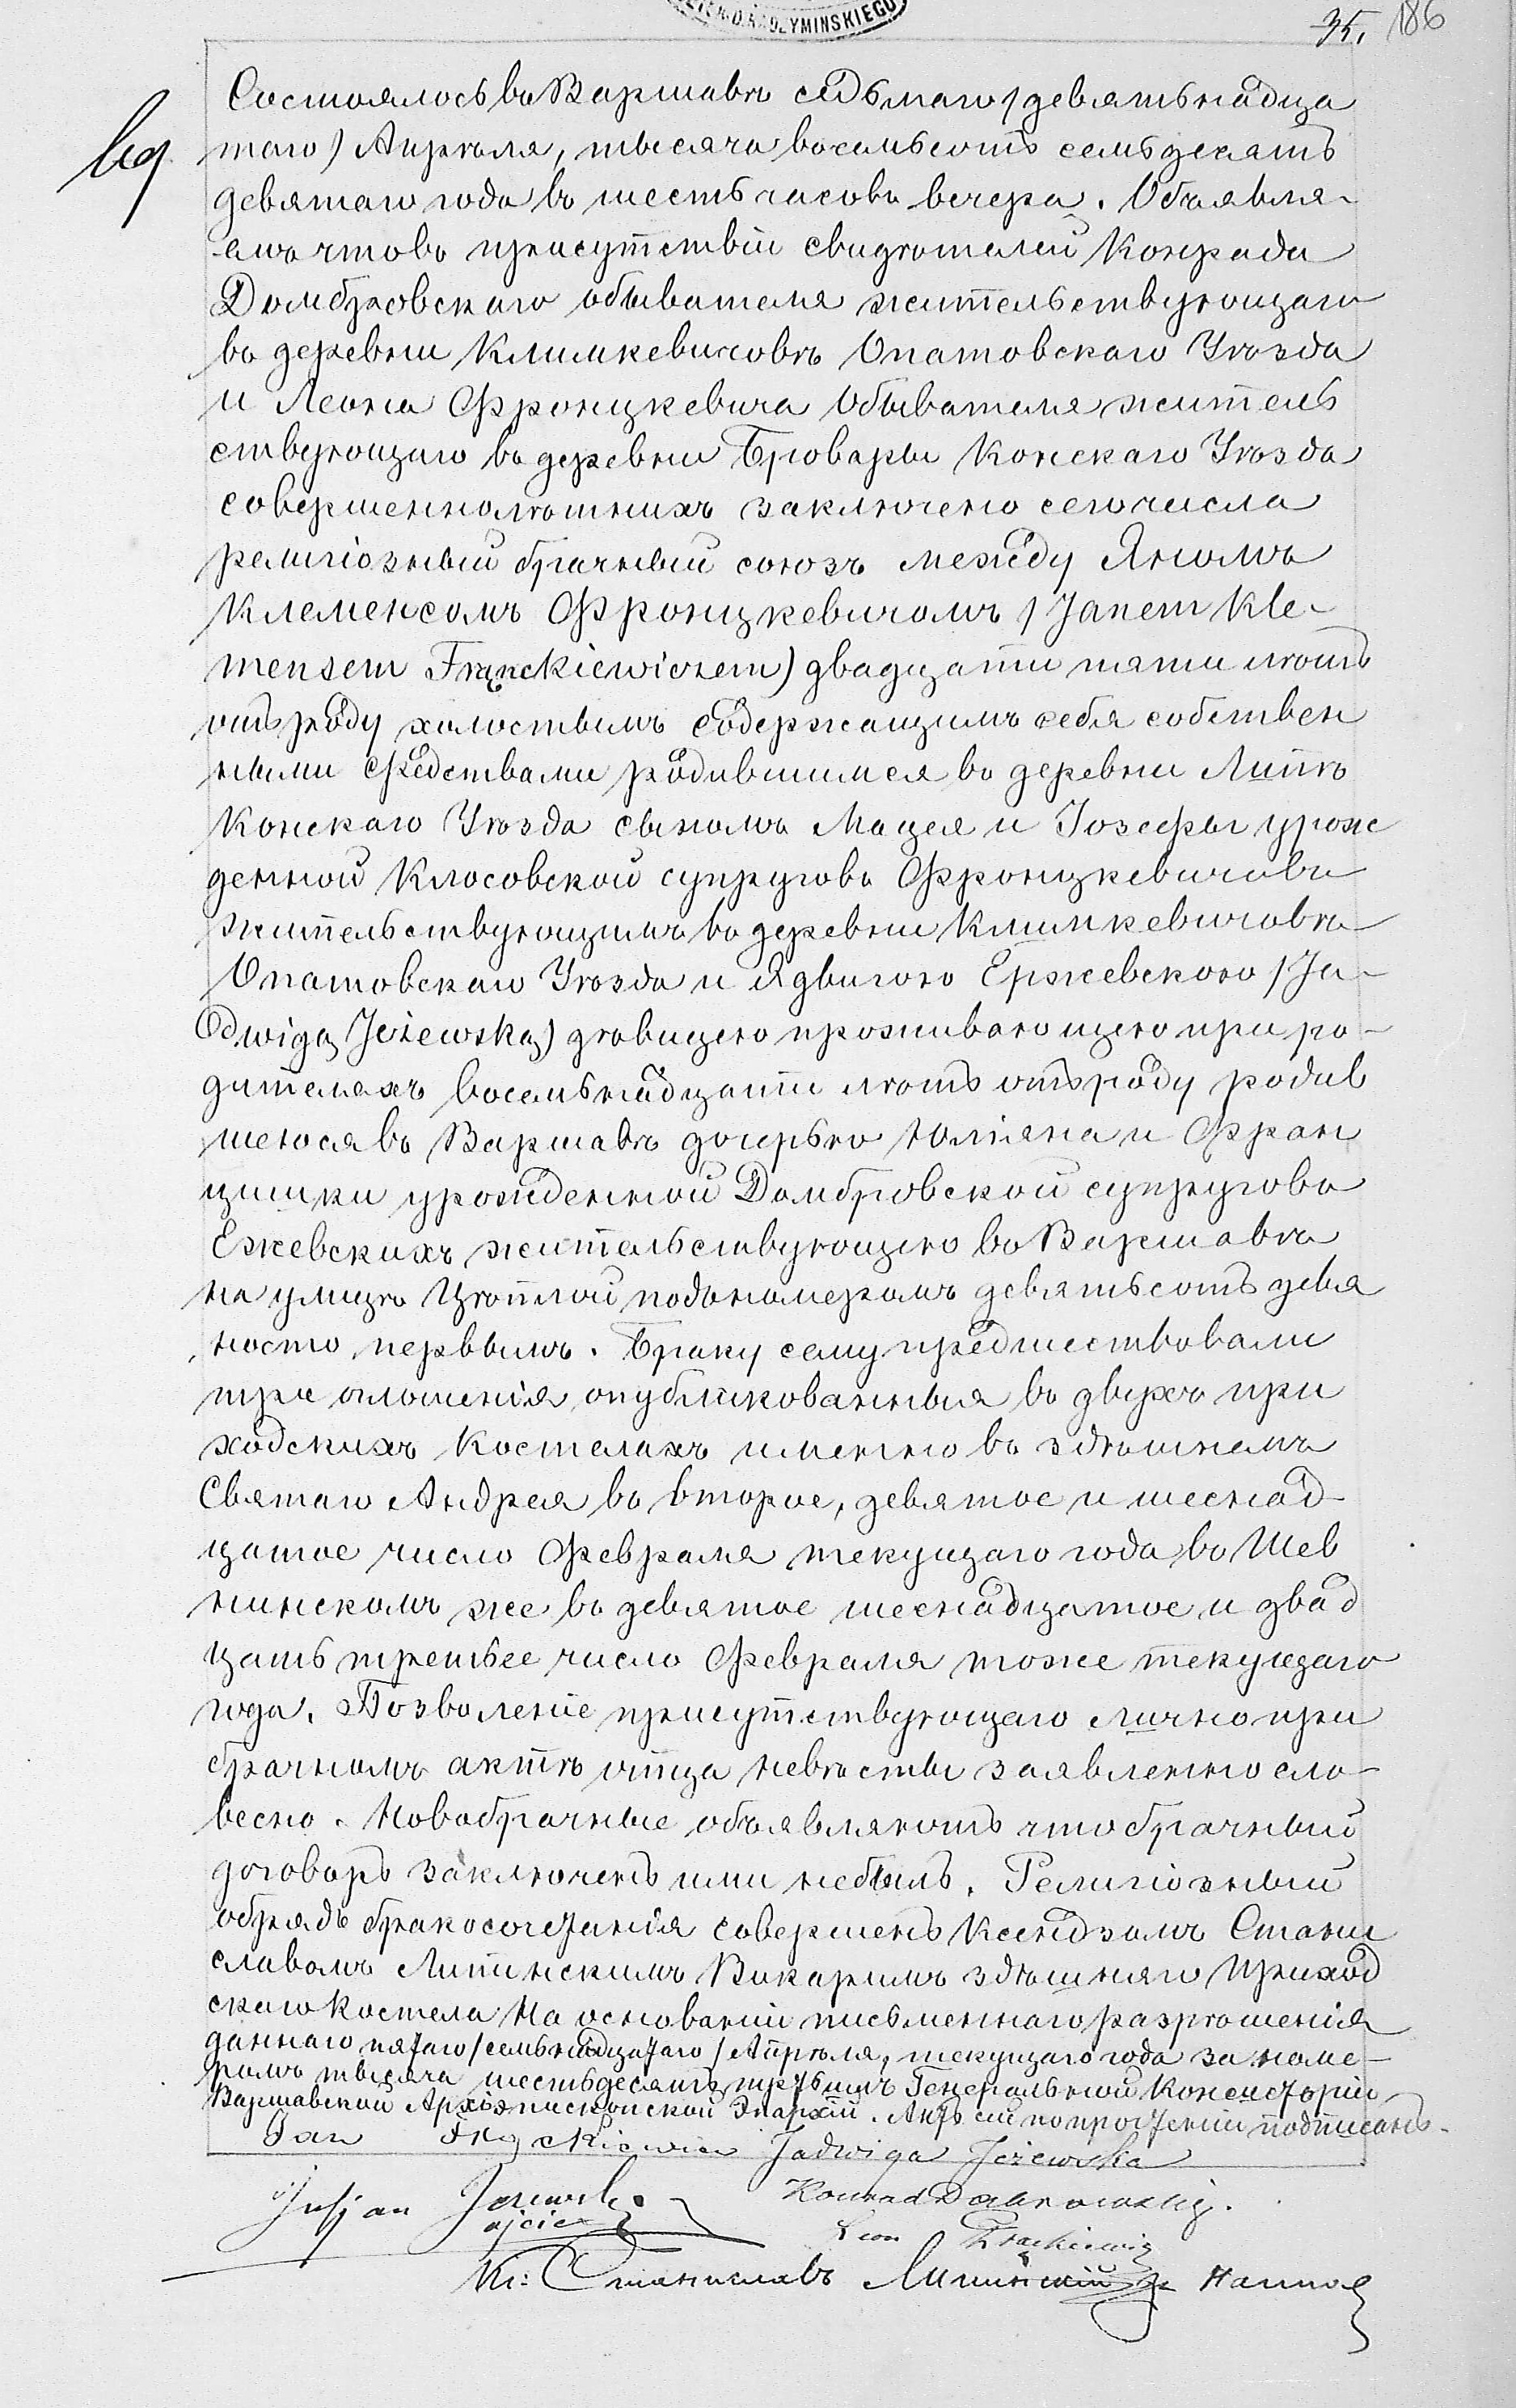 YMINSKIEGO
35. 186
169
Состоялось въ Варшавѣ седьмаго /девятьнадца
таго/ Апрѣля, тысяча восемьсотъ семьдесятъ
девятаго года въ шесть часовъ вечера. Объявля-
емъ что въ присутствіи свидѣтелей Конрада
Домбровскаго обывателя жительствующаго
въ деревни Климкевичовѣ Опатовскаго Уѣзда
и Леона Фронцкевича обывателя житель
ствующаго въ деревни Бровары Конскаго Уѣзда
совершеннолѣтнихъ заключено сего числа
религіозный брачный союзъ между Яномъ
Клеменсомъ Фронцкевичомъ /Janem Kle-
mensem Frąckiewiczem) двадцати пяти лѣтъ
отъ роду холостымъ содержащимъ себя собствен
ными средствами родившимся въ деревни Липѣ
Конскаго Уѣзда сыномъ Мацея и Іозефы урож
денной Клосовской супруговъ Фронцкевичовъ
жительствующимъ въ деревни Климкевичовѣ
Опатовскаго Уѣзда и Ядвигою Ержевскою /Ja-
dwigą Jeżewską) дѣвицею проживающею при ро-
дителяхъ восемьнадцати лѣтъ отъ роду родив
шеюся въ Варшавѣ дочерью Юліяна и Фран
цишки урожденной Домбровской супруговъ
Ежевскихъ жительствующею въ Варшавѣ
на улицѣ Цѣплой подъ номеромъ девятьсотъ девя
носто первымъ. Браку сему предшествовали
три оглошенія опубликованныя въ двухъ при
ходскихъ костелахъ именно въ здѣшнемъ
Святаго Андрея въ второе, девятое и шеснад
цатое число Февраля текущаго года въ Шев
нинскомъ же въ девятое шеснадцатое и двад
цать третьее число Февраля тоже текущаго
года. Позволеніе присутствующаго лично при
брачномъ актѣ отца невѣсты заявленно сло-
весно. Новобрачные объявляютъ что брачный
договоръ заключенъ ими небылъ. Религіозный
обрядъ бракосочетанія совершенъ Ксендзомъ Стани
славомъ Липинскимъ Викаримъ здѣшняго Приход
скаго Костела На основаніи письменнаго разрѣшенія
даннаго пятаго /семьнадцатаго/ Апрѣля, текущаго года за номе-
ромъ тысяча шестьдесятъ третьимъ Генеральной Консисторіи
Варшавской Архіэпископской Эпархіи. Актъ сей по прочтеніи подписанъ.
Jan Frąckiewicz Jadwiga Jeżewska
Juljan Jeżewski Konrad Dąbrowski.
ojciec Leon Frąckiewicz
Кс: Станиславъ Липинскій